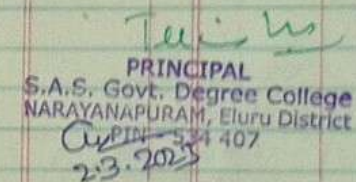 PRINCIPAL
S.A.S. Govt. Degree College
NARAYANAPURAM, Eluru District
PIN - 534 407
2.3.2023